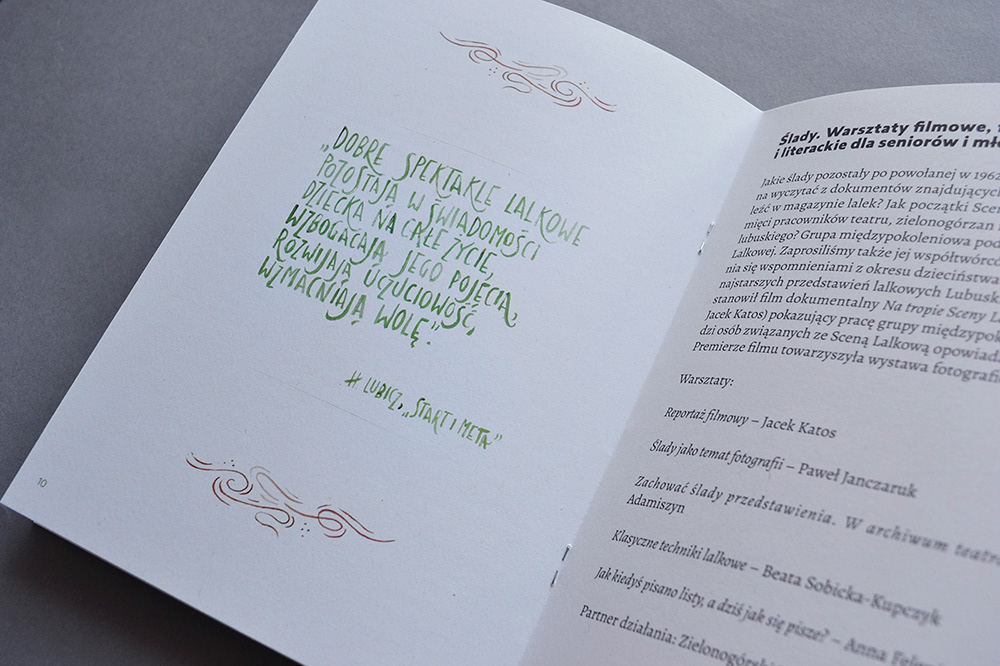 „DOBRE SPEKTAKLE LALKOWE
POZOSTAJĄ W ŚWIADOMOŚCI
DZIECKA NA CAŁE ŻYCIE,
WZBOGACAJĄ JEGO POJĘCIA,
ROZWIJAJĄ UCZUCIOWOŚĆ,
WZMACNIAJĄ WOLĘ”.
H. LUBICZ, „START I META”
10
Ślady. Warsztaty filmowe,
i literackie dla seniorów i
Jakie ślady pozostały po powołanej w 1962
na wyczytać z dokumentów znajdujących
leźć w magazynie lalek? Jak początki
mięci pracowników teatru, zielonogórzan
lubuskiego? Grupa międzypokoleniowa
Lalkowej. Zaprosiliśmy także jej
nia się wspomnieniami z okresu dzieciństwa
najstarszych przedstawień lalkowych
stanowił film dokumentalny Na tropie Sceny
Jacek Katos) pokazujący pracę grupy
dzi osób związanych ze Sceną Lalkową
Premierze filmu towarzyszyła wystawa
Warsztaty:
Reportaż filmowy – Jacek Katos
Ślady jako temat fotografii – Paweł Janczaruk
Zachować ślady przedstawienia. W archiwum
Adamiszyn
Klasyczne techniki lalkowe – Beata Sobicka-Kupczyk
Jak kiedyś pisano listy, a dziś jak się pisze? – Anna
Partner działania: